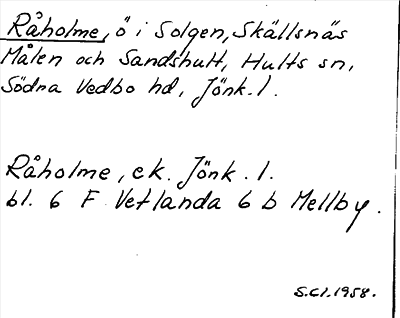 Råholme, ö i Solgen, Skällsnäs
Målen och Sandshult, Hults sn,
Södna Vedbo hd, Jönk. l.
Råholme, ek. Jönk. l.
bl. 6 F Vetlanda 6 b Mellby.
S.Cl. 1958.